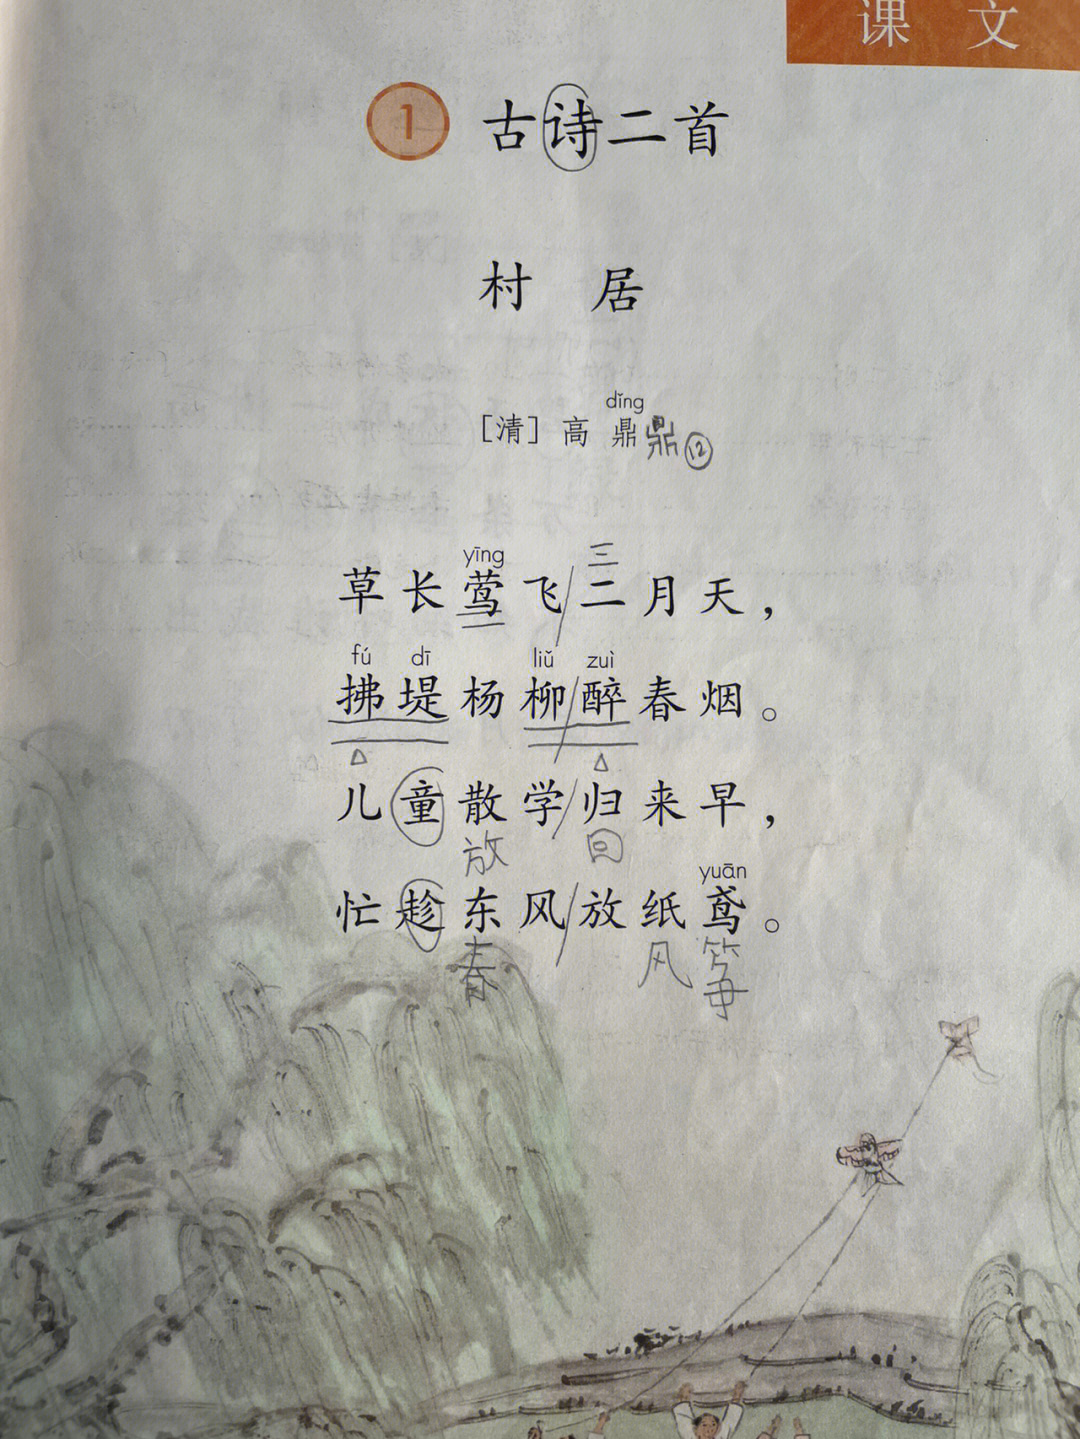 课 文
1 古诗二首
村 居
dǐng
[清] 高 鼎 鼎 ⑫
yīng 三
草长莺飞/二月天，
fú dī liǔ zuì
拂堤杨柳/醉春烟。
儿童散学/归来早，
放 回
yuān
忙趁东风/放纸鸢。
春 风 筝